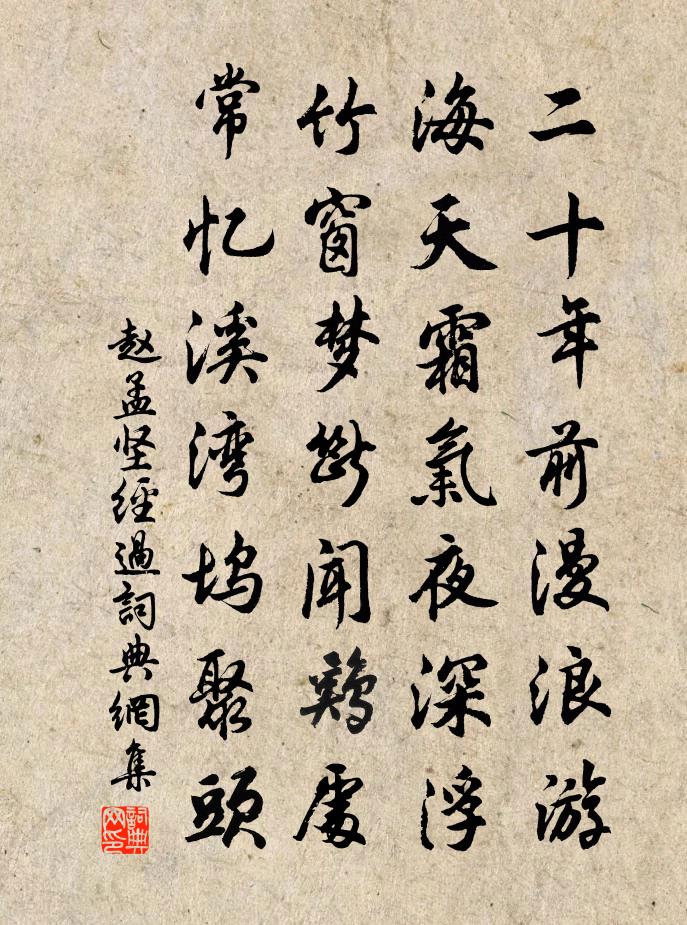 二十年前漫浪游
海天霜氣夜深浮
竹窗梦斷闻鷄處
常忆溪湾坞聚頭
赵孟坚經過詞典網集
詞典网印